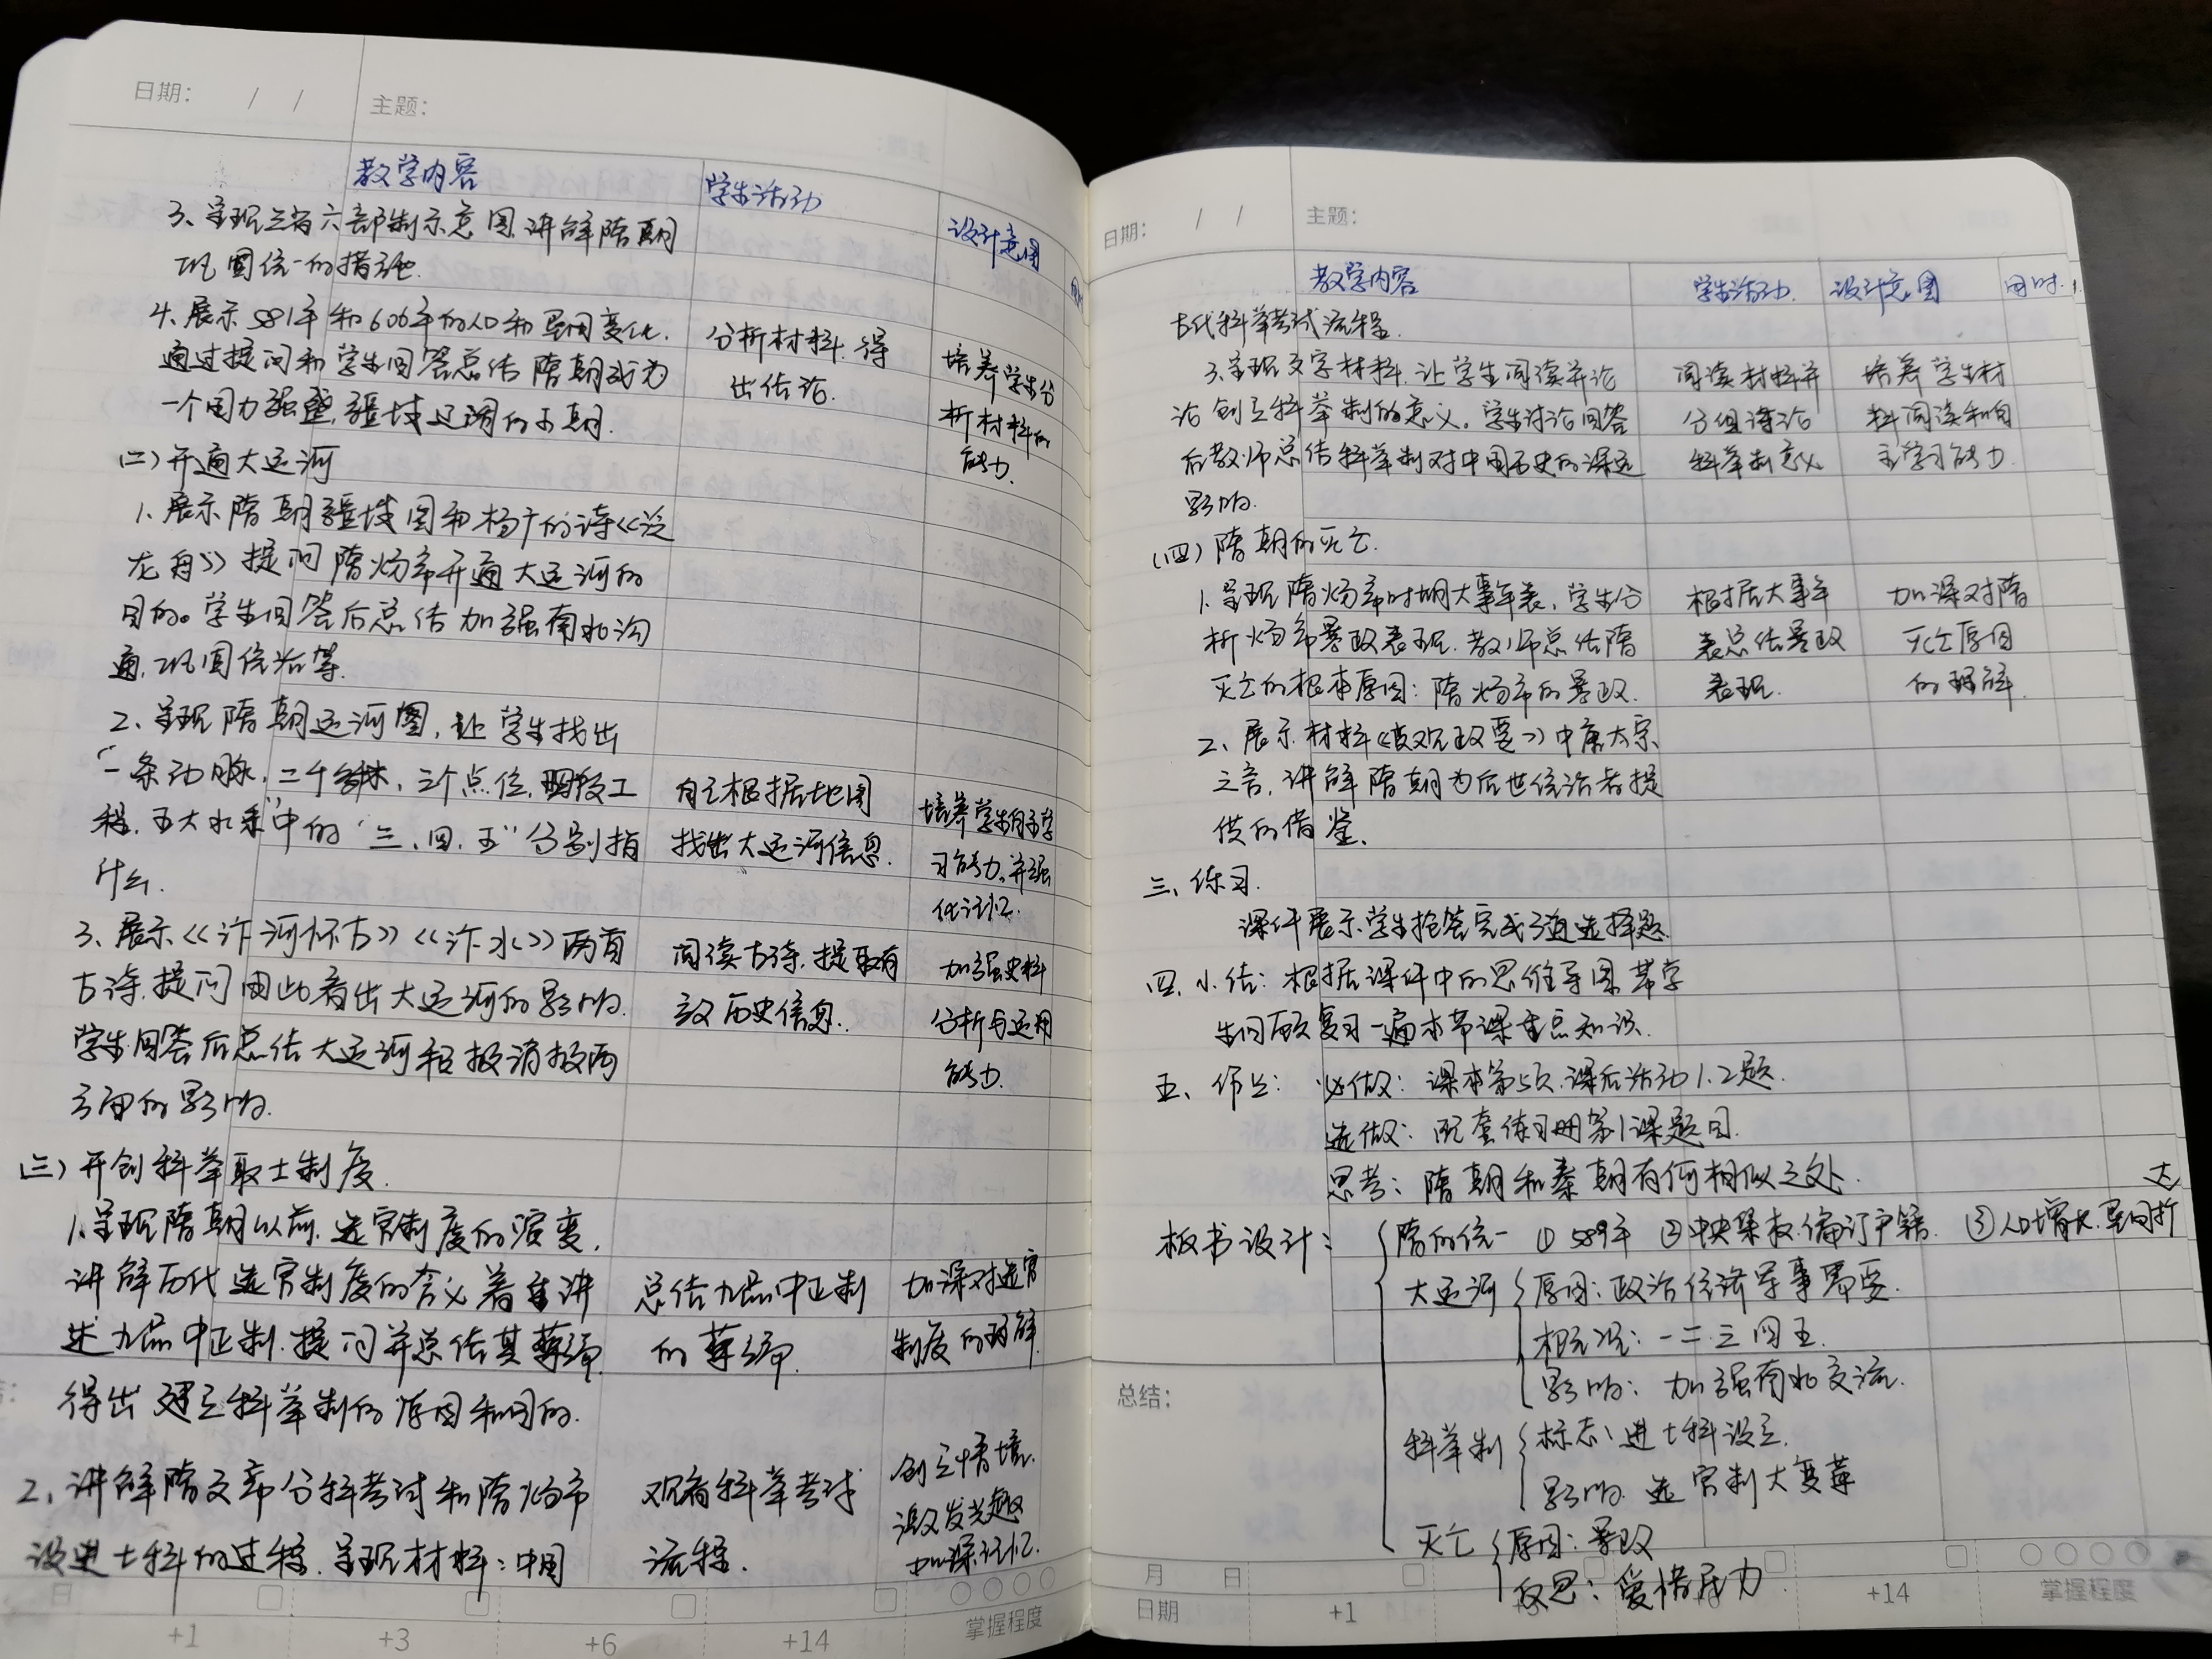 日期： / / 主题：
教学内容 学生活动 设计意图
3、呈现三省六部制示意图，讲解隋朝
巩固统一的措施.
4、展示581年和606年的人口和垦田变化. 分析材料.得 培养学生分
通过提问和学生回答总结隋朝成为 出结论. 析材料的
一个国力强盛,疆域辽阔的王朝. 能力.
(二)开通大运河
1、展示隋朝疆域图和杨广的诗《泛
龙舟》提问隋炀帝开通大运河的
目的。学生回答后总结加强南北沟
通,巩固统治等.
2、呈现隋朝运河图,让学生找出
“一条动脉,二千多,三个点位,四段工 自主根据地图 培养学生自主学
程,五大水系”中的“三、四、五”分别指 找出大运河信息. 习能力,并强
什么. 化记忆.
3、展示《汴河怀古》《汴水》两首 阅读古诗,提取有 加强史料
古诗,提问由此看出大运河的影响. 效历史信息. 分析与运用
学生回答后总结大运河积极消极两 能力.
方面的影响.
(三)开创科举取士制度.
1.呈现隋朝以前,选官制度的演变,
讲解历代选官制度的含义着重讲 总结九品中正制 加深对选官
述九品中正制.提问并总结其弊端 的弊端. 制度的理解.
得出建立科举制的原因和目的.
2、讲解隋文帝分科考试和隋炀帝 观看科举考试 创立情境.
设进士科的过程.呈现材料:中国 流程. 激发兴趣
加深记忆.
日
+1 +3 +6 +14 掌握程度
日期： / / 主题：
教学内容 学生活动. 设计意图 用时.
古代科举考试流程.
3.呈现文字材料.让学生阅读并论 阅读材料并 培养学生材
论创立科举制的意义。学生讨论回答 分组讨论 料阅读和自
后教师总结科举制对中国历史的深远 科举制意义 主学习能力.
影响.
(四)隋朝的灭亡.
1、呈现隋炀帝时期大事年表,学生分 根据大事年 加深对隋
析炀帝暴政表现.教师总结隋 表总结暴政 灭亡原因
灭亡的根本原因:隋炀帝的暴政. 表现. 的理解.
2、展示材料《贞观政要》中唐太宗
之言,讲解隋朝为后世统治者提
供的借鉴.
三、练习.
课件展示学生抢答完成3道选择题.
四、小结:根据课件中的思维导图带学
生回顾复习一遍本节课重点知识.
五、作业: 必做:课本第5页.课后活动1.2题.
选做:配套练习册第1课题目.
思考:隋朝和秦朝有何相似之处.
板书设计: 隋的统一 ①589年 ②中央集权.编订户籍. ③人口增长.垦田扩大
大运河 原因:政治经济军事需要.
相况:一二三四五.
影响:加强南北交流.
科举制 标志:进士科设立.
影响:选官制大变革
灭亡 原因:暴政
反思:爱惜民力
总结：
月 日
日期 +1 +14 掌握程度